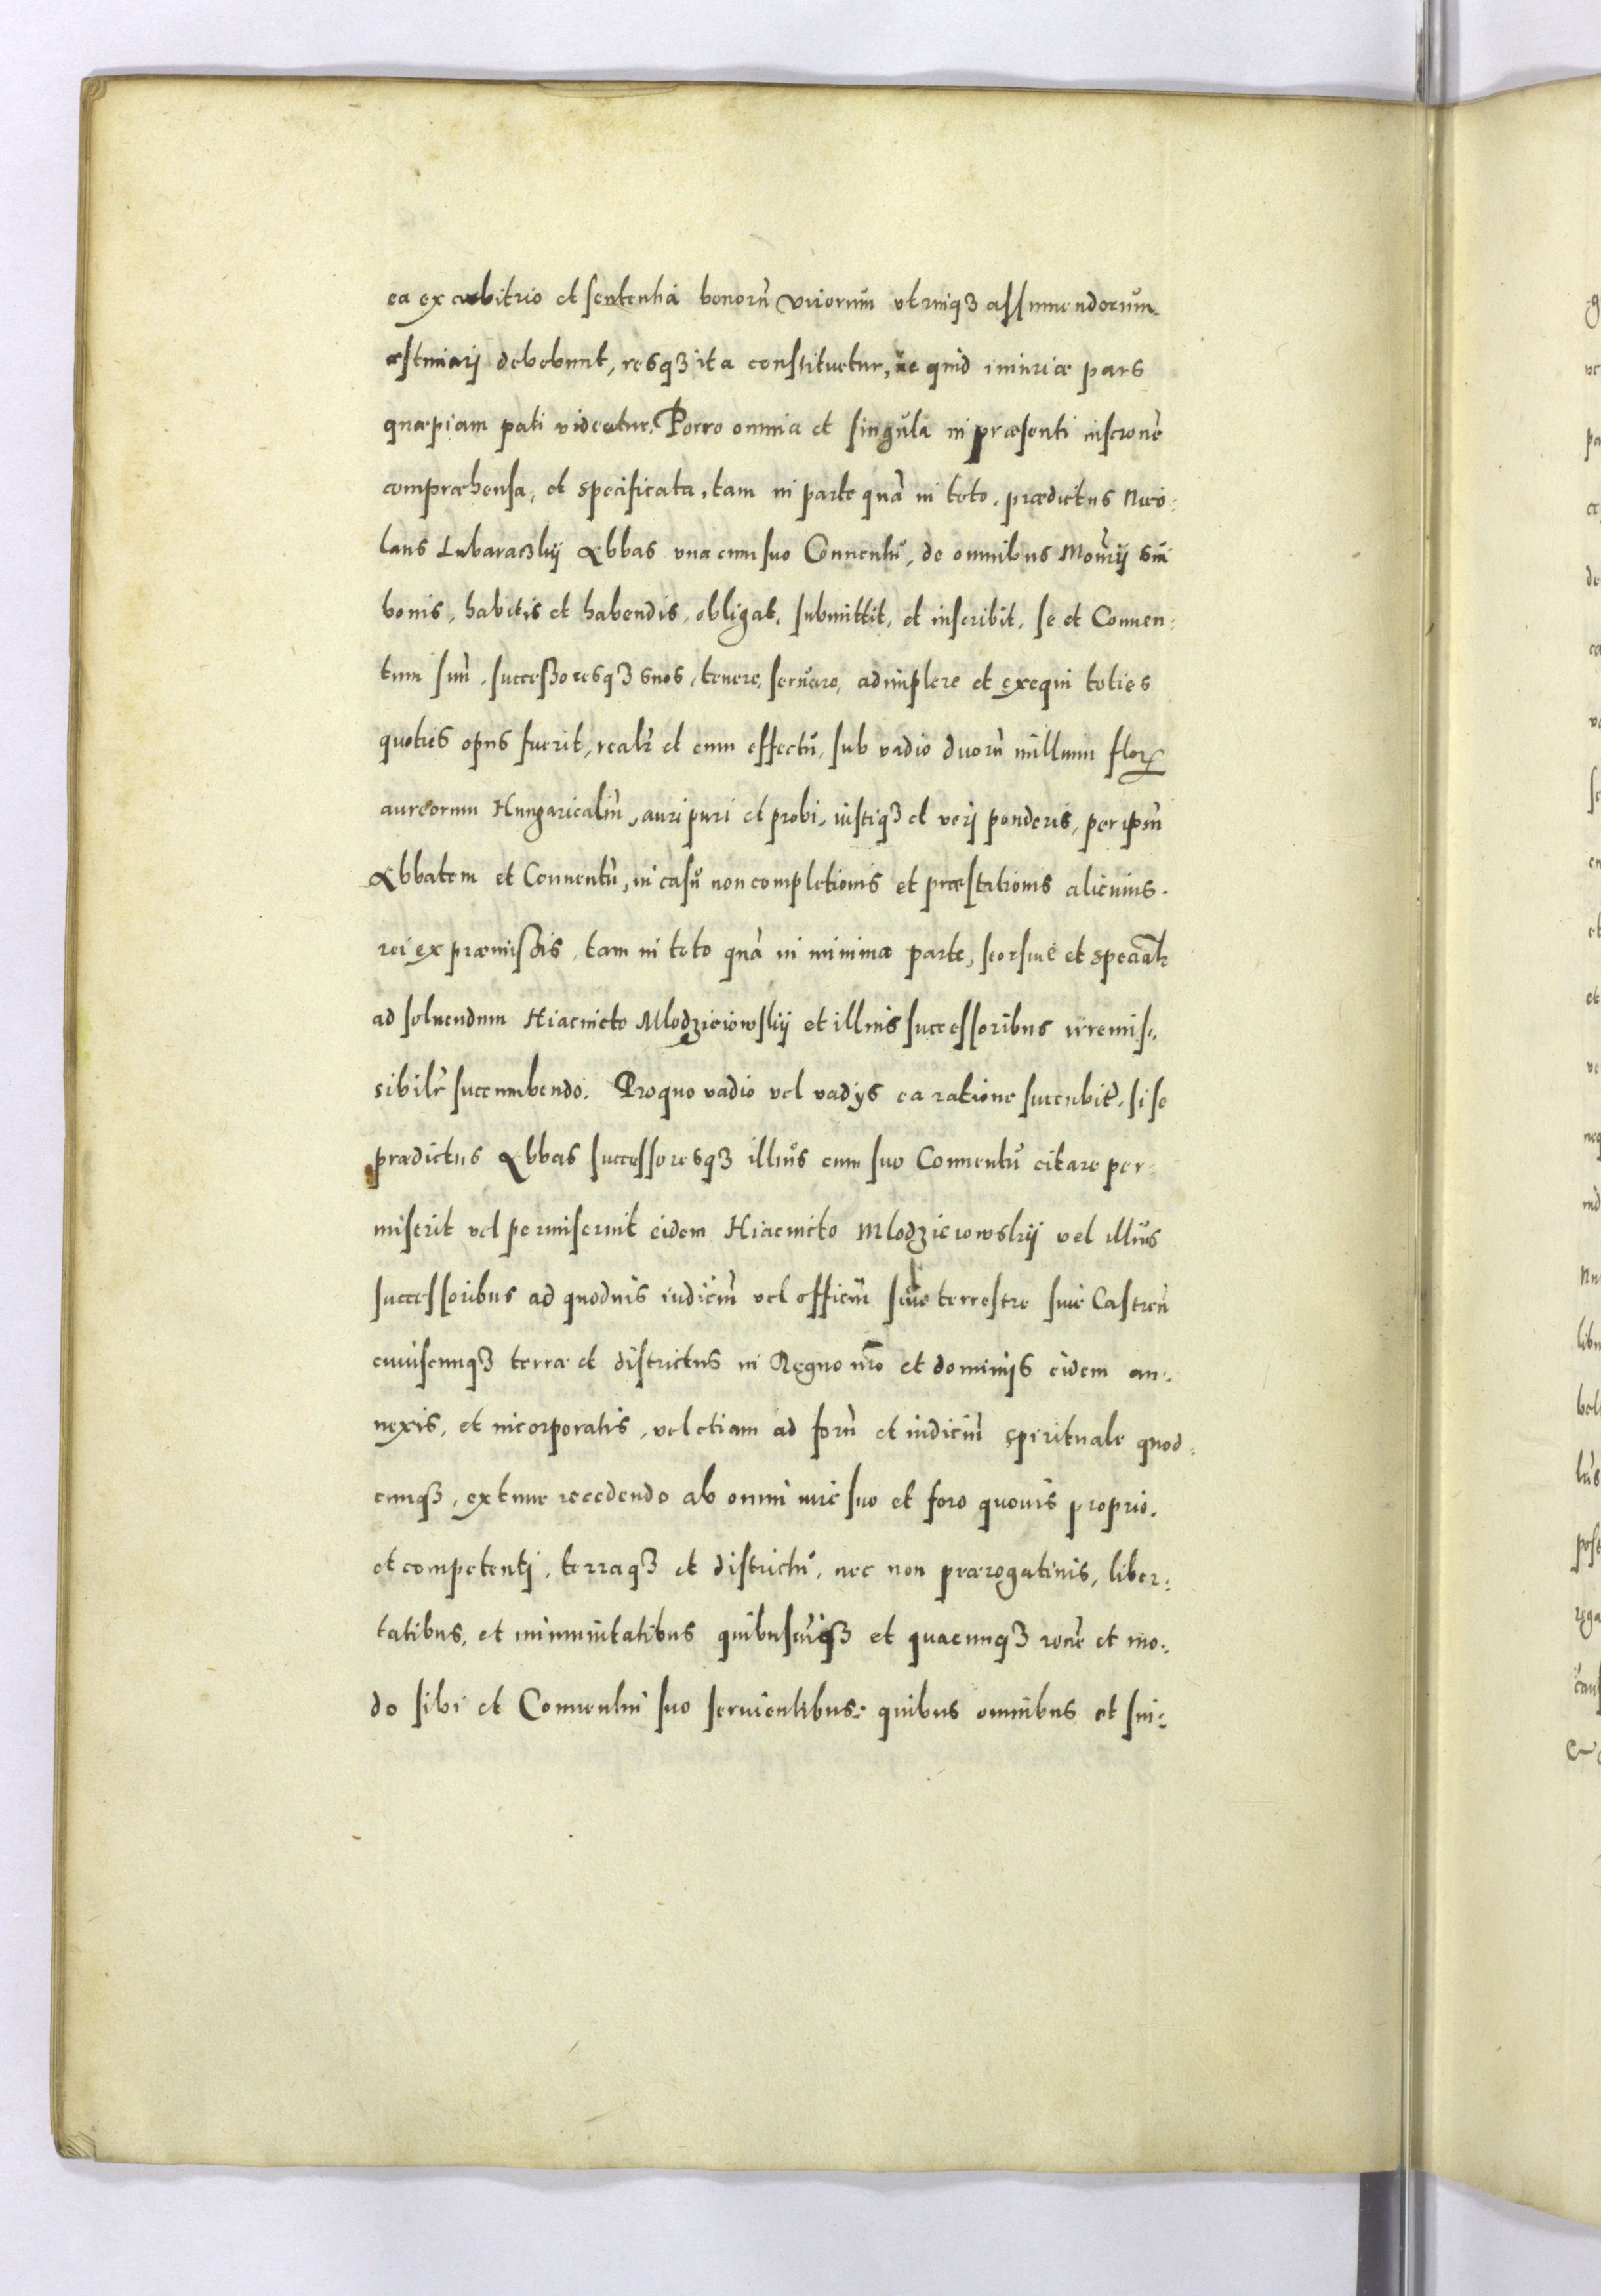 ea ex arbitrio et sententia bonorũ virorum utrinqꝫ assumendorum
æstimarj debebunt, resqꝫ ita constituetur, ne quid iniuriæ pars
quæpiam pati videatur. Porro omnia et singula in præsenti inscrõne
compræhensa, et specificata, tam in parte quã in toto, prædictus Nico:
laus Lubaraczkij Abbas una cum suo Conuentu, de omnibus Monrij sui
bonis, habitis et habendis, obligat, submittit, et inscribit, se et Conuen:
tum suũ, successoresqꝫ suos, tenere, seruare, adimplere et exequi toties
quoties opus fuerit, realr̃ et cum effectu, sub vadio duorũ millium flor̃
aureorum Hungaricaliũ, auri puri et probi, iustiqꝫ et verj ponderis, per ipsũ
Abbatem et Conuentũ, in casu non completionis et præstationis alicuius
rei ex præmissis, tam in toto quã in minima parte, seorsiue et specialr̃
ad soluendum Hiacincto Mlodzieiowskij et illius successoribus irremis:
sibilr̃ succumbendo. Pro quo vadio vel vadijs ea ratione succubit̃, si se
prædictus Abbas successoresqꝫ illius cum suo Conuentu citare per:
miserit vel permiserint eidem Hiacincto Mlodzieiowskij vel illius
successoribus ad quoduis iudiciũ vel officiũ siue terrestre siue Castreñ
cuiuscunqꝫ terræ et districtus in Regno nrõ et dominijs eidem an:
nexis, et incorporatis, vel etiam ad forũ et iudiciũ spirituale quod:
cunqꝫ, ex tunc recedendo ab omni iure suo et foro quouis proprio
et competentj, terraqꝫ et districtu, nec non prærogatiuis, liber:
tatibus, et immunitatibus quibuscũqꝫ et quacunqꝫ rõne et mo:
do sibi et Conuentui suo seruientibus: quibus omnibus et sin: